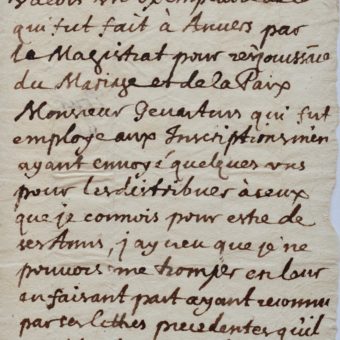 qui fut fait à Anvers par
le Magistrat pour resjouissãce
du Mariage et de la Paix
Monsieur Gevartius qui fut
employe aux Inscriptions m'en
ayant envoyé quelques uns
pour les distribuer à ceux
que je connois pour estre de
ses Amis, j'ay creu que je ne
pouvois me tromper en leur
en faisant part ayant reconnu
par ses lettres precedentes qu'il